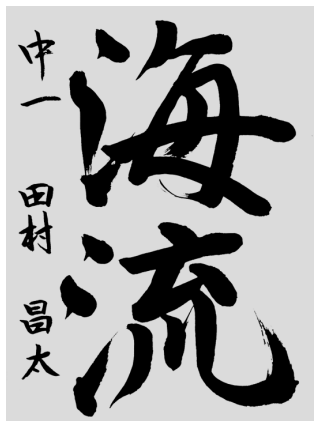 海流
中一 田村 昌太